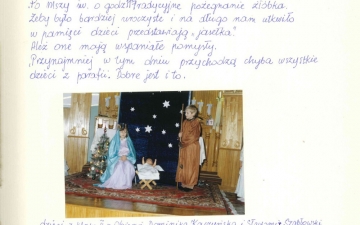 Po Mszy św. o godz. tradycyjne pożegnanie żłóbka.
Żeby było bardziej uroczyste i na długo nam utkwiło
w pamięci dzieci przedstawiają „jasełka”.
Ależ one mają wspaniałe pomysły.
Przynajmniej w tym dniu przychodzą chyba wszystkie
dzieci z parafii. Dobre jest i to.
dzieci z klasy Dominika i